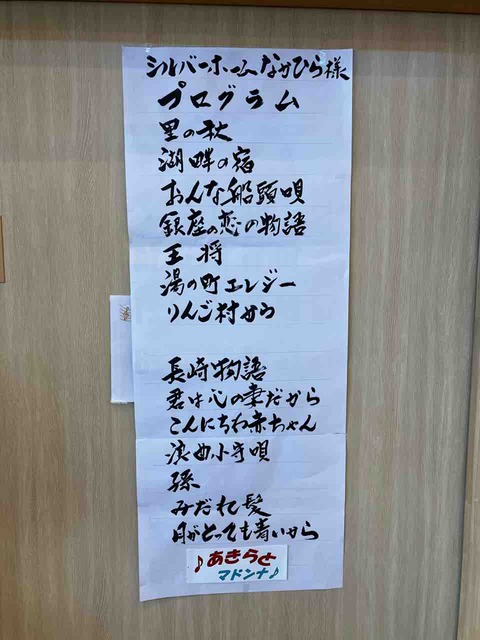 シルバーホームなかひら様
プログラム
里の秋
湖畔の宿
おんな船頭唄
銀座の恋の物語
王将
湯の町エレジー
りんご村から
長崎物語
君は心の妻だから
こんにちわ赤ちゃん
浪曲小守唄
孫
みだれ髪
月がとっても青いから
♪あきらと
マドンナ♪